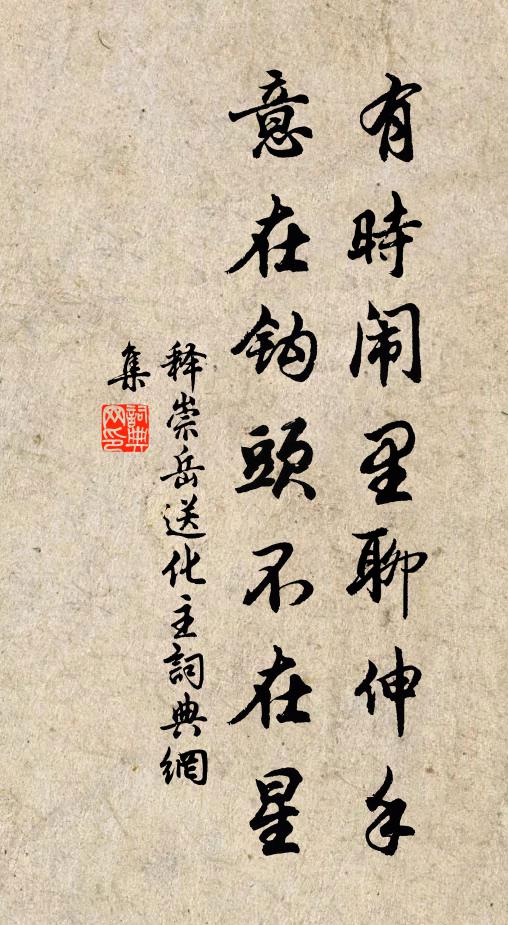 有時闹里聊伸手
意在鈎頭不在星
释崇岳送化主詞典網
集
詞典网印